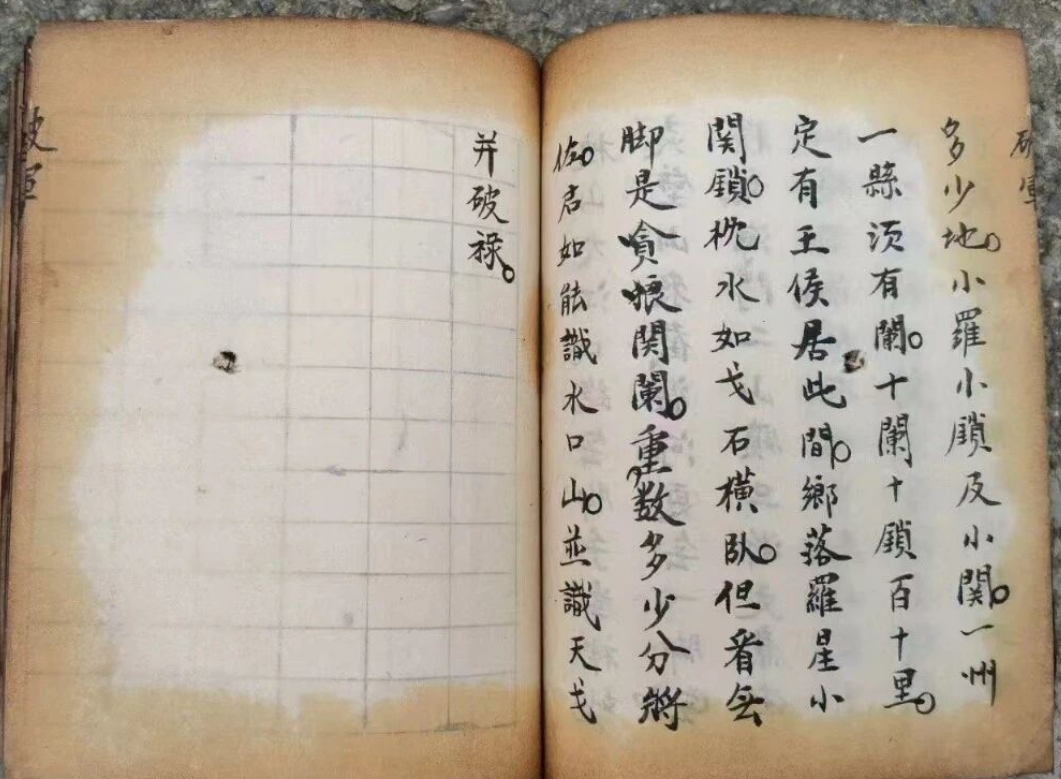 破軍
多少地。小羅小鎖及小関。一州
一縣湏有闌。十闌十鎖百十里。
定有王侯居此間。鄉落羅星小
関鎖。枕水如戈石橫臥。但看無
脚是貪狼関闌。重数多少分將
佐。君如能識水口山。並識天戈
并破祿。
破軍